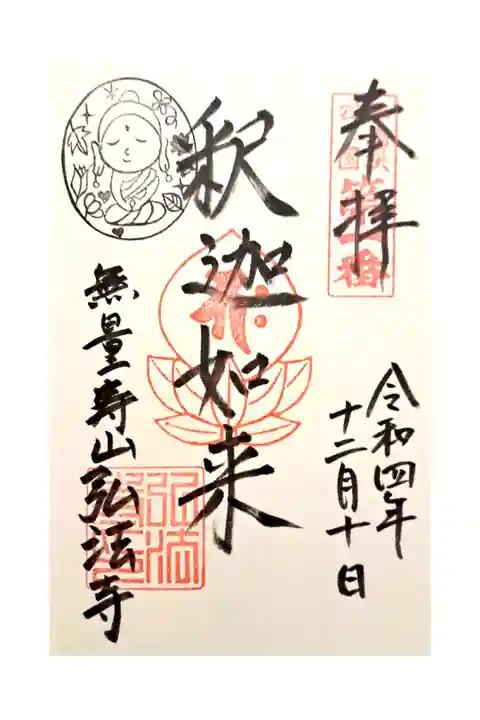 奉拝
第一番
令和四年
十二月十日
釈迦如来
無量寿山弘法寺
弘法